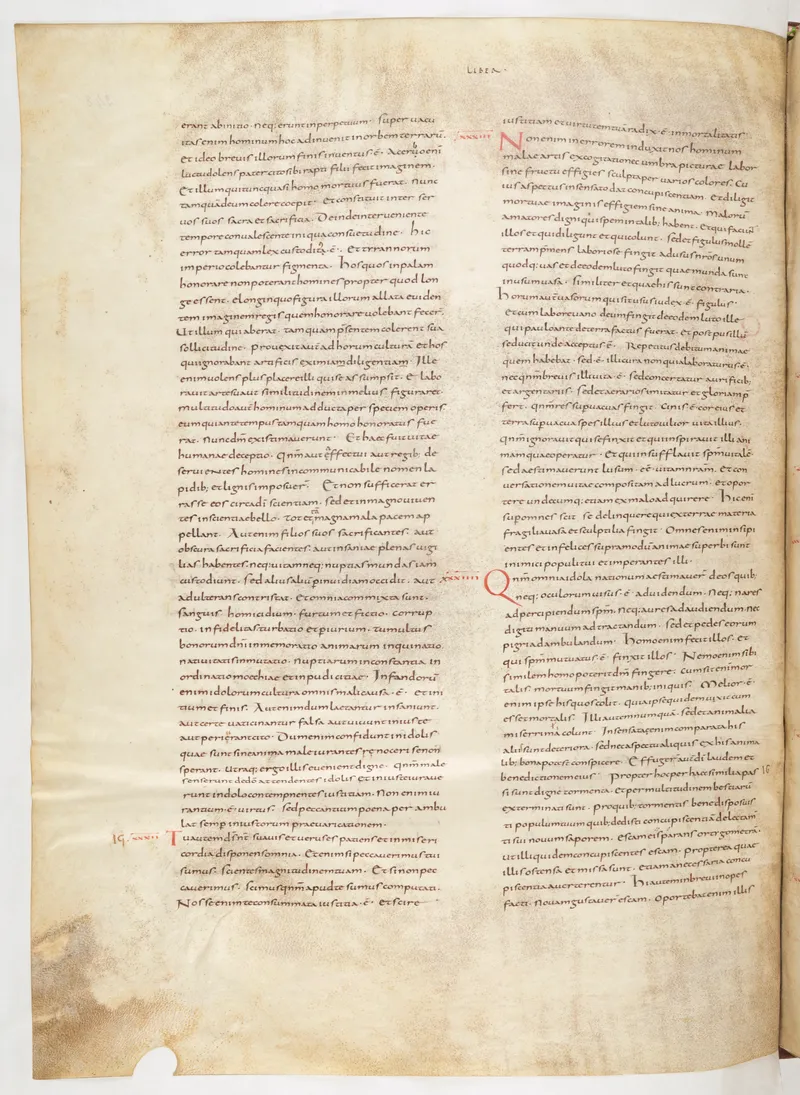 LIBER
erant abinitio. neq; erunt inperpetuum. Super uacu
itas enim hominum hoc adinuenit inorbem terrarũ.
et ideo breuis illorum finis inuentus. ẽ. Acerbo enĩ
luctu dolens pater cito sibi rapti filii fecit imaginem.
Et illum qui tunc quasi homo mortuus fuerat. nunc
tamquã deum colere coepit. et constituit inter ser
uos suos sacra et sacrificia. Deinde interueniente
tempore conualescente iniqua consuetudine. hic
error tamquam lex custodita. ẽ. Et tyrannorum
imperio colebantur figmenta. Hos quos inpalam
honorare non poterant homines propter quod lon
ge essent. elonginquo figura illorum allata euiden
tem imaginem regis quem honorare uolebant fecer̃.
Ut illum qui aberat. tamquam p̃sentem colerent sua
sollicitudine. prouexit aut̃ ad horum culturã et hos
qui ignorabant artificis eximia diligentiam. Ille
enim uolens plus placere illi qui se assumpsit. elabo
rauit arte sua ut similitudinem inmelius figuraret.
multitudo aut̃ hominum adducta per speciem operis
eum qui ante tempus tamquam homo honoratus fue
rat. nunc dm̃ existimauerunt. Et haec fuit uitae
humanae deceptio. qm̃ aut effectui aut regib; de
seruientes homines incommunicabile nomen la
pidib; et lignis imposuer̃. Et non suffecerat er
rasse eos circa dĩ scientiam. sed et in magno uiuen
tes inscientiae bello. tot et tã magna mala pacem ap
pellant. Aut enim filios suos sacrificantes. aut
obscura sacrificia facientes. aut insaniae plenas uigi
lias habentes. neq; uitam neq; nuptias mundas iam
custodiunt. sed alius alium p̃ inuidiam occidit. aut
adulterans contristat. et omnia commixta sunt.
sanguis homicidium. furtum et fictio. corrup
tio. infidelitas turbatio et piurium. tumultus
bonorum dnĩ inmemoratio animarum inquinatio
natiuitatis inmutatio. nuptiarum inconstantia in
ordinatio moechiae et inpudicitiae. Infandorũ
enim idolorum cultura omnis mali causa. ẽ. et ini
tium et finis. Aut enim dum laetantur insaniunt.
aut certe uaticinantur falsa aut uiuunt iniuste
aut peierant cito. Dum enim confidunt in idolis
quae sunt sine anima male iurantes se noceri se non
sperant. utraq; ergo illis euenient digne. qm̃ male
senserunt de dõ attendentes idolis et iniuste iuraue
runt indolo contempnentes iustitiam. non enim iu
rantium. ẽ. uirtus. sed peccantium poena per ambu
lat semp iniustorum praeuaricationem.
15 xxxii Tu autem ds̃ nr̃ suauis et uerus es patiens et in miseri
cordia disponens omnia. Etenim si peccauerimus tui
sumus. scientes magnitudinem tuam. Et si non pec
cauerimus. scimus qm̃ apud te sumus computati.
Nosse enim te consummata iustitia. ẽ. et scire
iustitiam et uirtutem tuã radix. ẽ. inmortalitatis.
xxxiii Non enim in errorem induxit nos hominum
malae artis excogitatio nec umbra picturae labor
sine fructu effigies sculpta per uarios colores. Cu
ius aspectus insensato dat concupiscentiam. et diligit
mortuae imaginis effigiem sine anima. Malorũ
amatores digni qui spem in talib; habent. et qui faciunt
illos et qui diligunt et qui colunt. sed et figulus mollẽ
terram p̃mens laboriose fingit ad usus nr̃os unum
quodq; uas et de eodem luto fingit quae munda sunt
in usum uasa. similiter et quae his sunt contraria.
Horum aut̃ uasorum qui sit usus iudex. ẽ. figulus.
et cum labore uano deum fingit de eodem luto ille
qui paulo ante de terra factus fuerat. et post pusillũ
se ducit unde acceptus. ẽ. Repetitus debitum animae
quem habebat. Sed. ẽ. illi cura non quia laboraturus. ẽ.
nec qm̃ breuis illi uita. ẽ. sed concertatur aurificib;
et argentariis. sed et aerarios imitatur et gloriam p̃
fert. qm̃ res supuacuas fingit. Cinis. ẽ. cor eius et
terra supuacua spes illius et luto uilior uita illius.
qm̃ ignorauit qui se finxit et qui inspirauit illi ani
mam quae operatur. et qui insufflauit sp̃m uitalẽ.
sed aestimauerunt lusum. eẽ. uitam nr̃am. et con
uersationem uitae compositam ad lucrum. et opor
tere undecumq; etiam ex malo adquirere. hic enĩ
sup omnes scit se delinquere qui ex terrae materia
fragilia uasa et sculptilia fingit. Omnes enim insipi
entes et infelices supra modũ animae superbi sunt
inimici populi tui et imperantes illi.
xxxiiii Qnm̃ omnia idola nationum aestimauer̃ deos quib;
neq; oculorum usus. ẽ. aduidendum. neq; nares
ad percipiendum sp̃m. neq; aures ad audiendum. nec
digiti manuum ad tractandum. sed et pedes eorum
pigri ad ambulandum. Homo enim fecit illos. et
qui sp̃m mutuatus. ẽ. finxit illos. Nemo enim sibi
similem homo poterit dm̃ fingere. cum sit enim mor
talis. mortuum fingit manib; iniquis. Melior. ẽ.
enim ipse his quos colit. quia ipse quidem uixit cum
esset mortalis. illi autem numquã. sed et animalia
miserrima colunt. Insensata enim comparata his
aliis sunt deteriora. sed nec aspectu aliquis ex his anima
lib; bona potest conspicere. Effugerunt aut̃ dĩ laudem et
benedictionem eius. Propter hoc per haec similia pas 16
si sunt digne tormenta. et per multitudinem bestiarũ
exterminati sunt. pro quib; tormentis bene disposuis
ti populum tuum quib; dedisti concupiscentiã delectam
ti sui nouum saporem. escam eis parans ortygometrã.
ut illi quidem concupiscentes escam. propter ea quae
illis ostensa et missa sunt. etiam a necessaria concu
piscentia auerterentur. Hi autem inbreui inopes
facti. nouam gustauer̃ escam. Oportebat enim illis